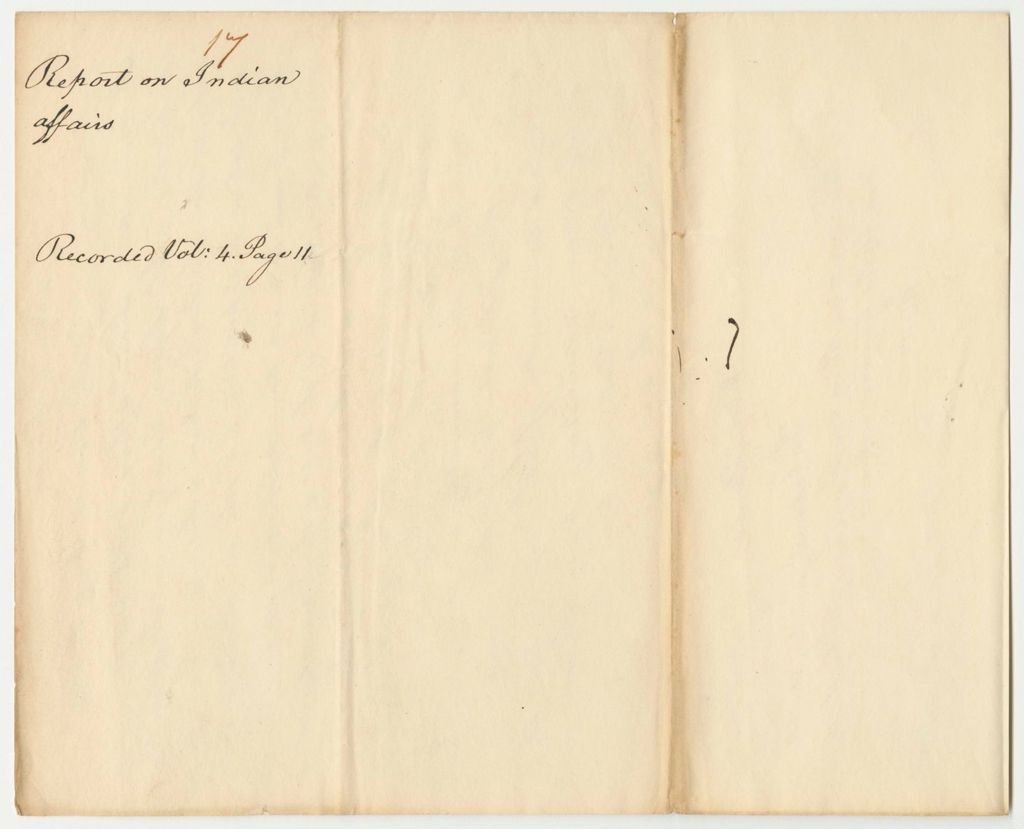 17
Report on Indian
affairs
Recorded Vol: 4. Page 11